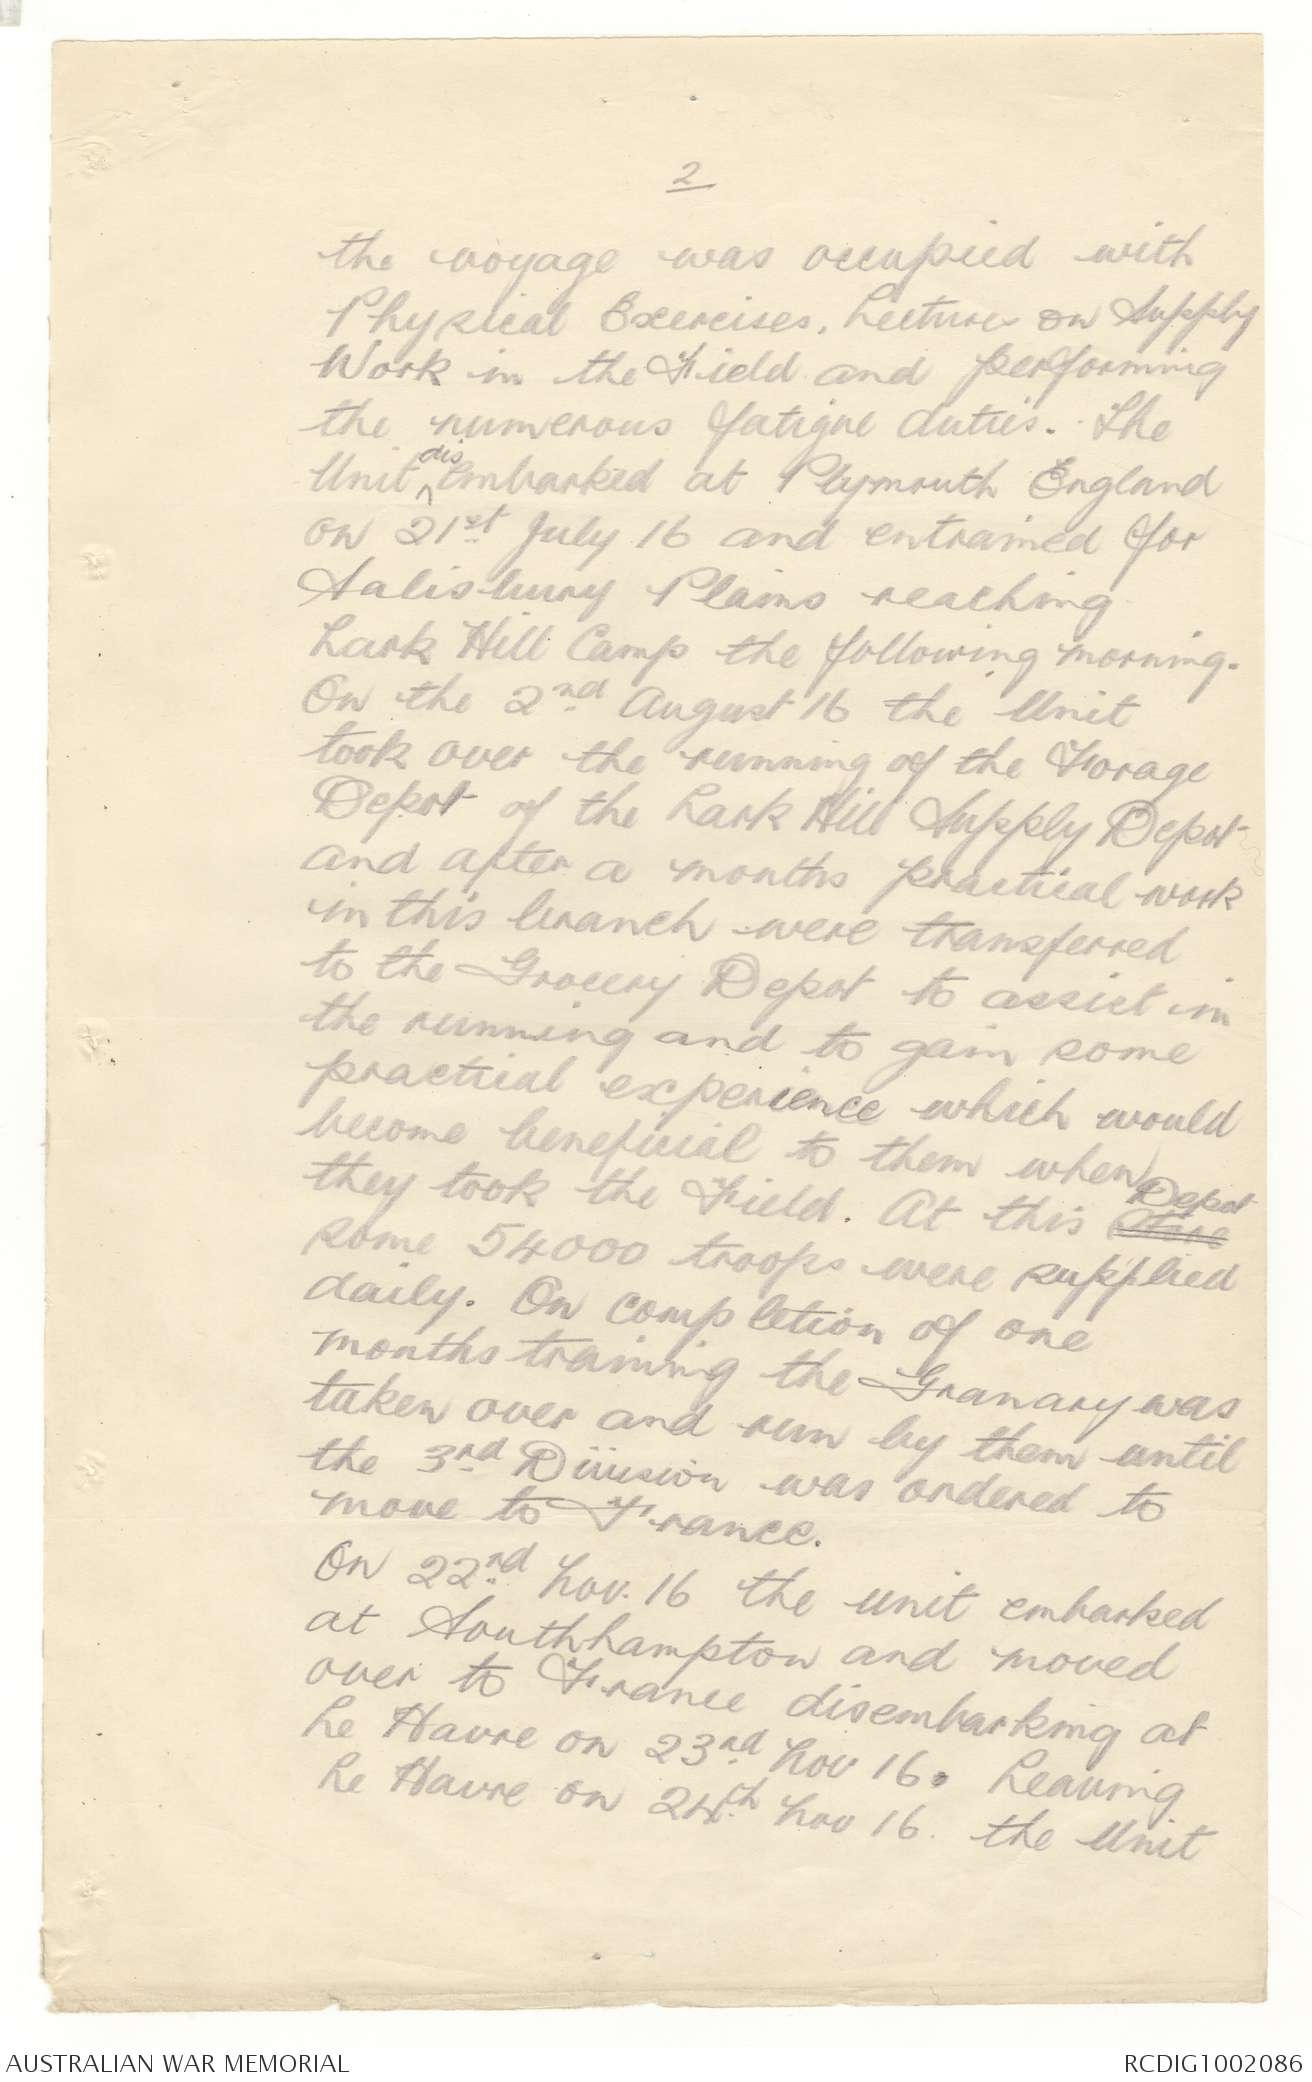 2
the voyage was occupied with
Physical Exercises, Lectures on Supply
Work in the Field and performing
the numerous fatigue duties. The
Unit disembarked at Plymouth England
on 21st July 16 and entrained for
Salisbury Plains reaching
Lark Hill Camp the following morning.
On the 2nd August 16 the Unit
took over the running of the Forage
Depot of the Lark Hill Supply Depot
and after a months practical work
in this branch were transferred
to the Grocery Depot to assist in
the running and to gain some
practical experience which would
become beneficial to them when
they took the Field. At this Depot
some 54000 troops were supplied
daily. On completion of one
months training the Granary was
taken over and run by them until
the 3rd Division was ordered to
move to France.
On 22nd Nov. 16 the unit embarked
at Southhampton and moved
over to France disembarking at
Le Havre on 23rd Nov 16. Leaving
Le Havre on 24th Nov 16. the Unit
AUSTRALIAN WAR MEMORIAL
RCDIG1002086